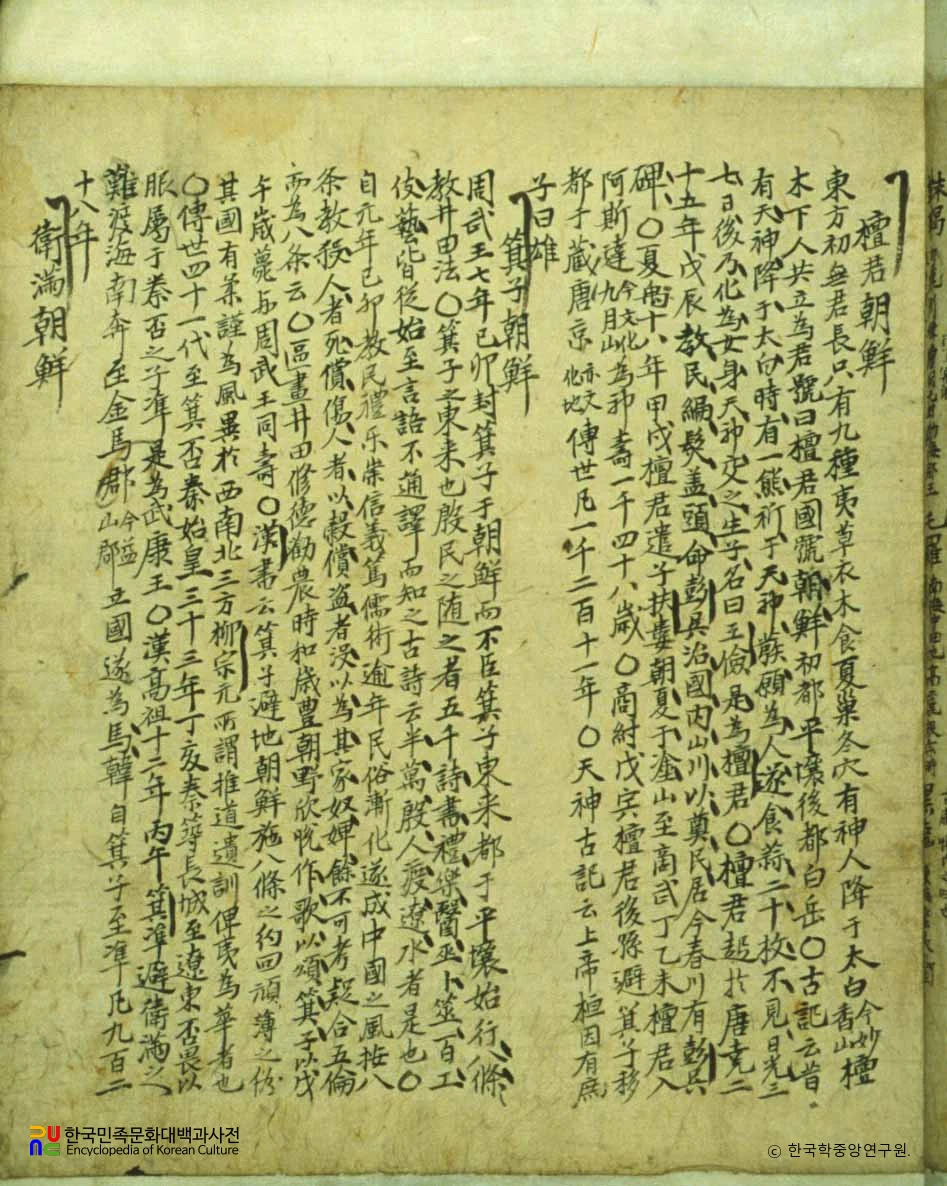 檀君朝鮮
東方初無君長只有九種夷草衣木食夏巢冬穴有神人降于太白今妙香山檀
木下人共立為君號曰檀君國號朝鮮初都平壤後都白岳〇古記云昔
有天神降于太白時有一熊祈于天神蔟願為人遂食蒜二十枚不見日光三
七日後乃化為女身天神交之生子名曰王儉是為檀君〇檀君起於唐堯二
十五年戊辰教民編髮盖頭命彭吳治國內山川以奠民居今春川有彭吳
碑〇夏 十八年甲戌檀君遣子扶婁朝夏于塗山至商武丁乙未檀君入
阿斯達今文化九月山為神壽一千四十八歲〇商紂戊寅檀君後孫避箕子移
都于藏唐京亦文化地傳世凡一千二百十一年〇天神古記云上帝桓因有庶
子曰雄
箕子朝鮮
周武王七年己卯封箕子于朝鮮而不臣箕子東来都于平壤始行八條
教井田法〇箕子之東来也殷民之随之者五千詩書禮樂醫巫卜筮百工
伎藝皆從始至言語不通譯而知之古詩云半萬殷人渡遼水者是也〇
自元年己卯教民禮乐崇信義篤儒術逾年民俗漸化遂成中國之風按八
条教殺人者死償傷人者以穀償盗者没以為其家奴婢餘不可考疑合五倫
而為八条云〇區畫井田修德勸農時和歲豊朝野欣悅作歌以頌箕子以戊
午歲薨与周武王同壽〇漢書云箕子避地朝鮮施八條之約四頑薄之俗
其國有柔謹為風異於西南北三方柳宗元所謂推道遺訓俾夷為華者也
〇傳世四十一代至箕否秦始皇三十三年丁亥秦築長城至遼東否畏以
服屬于秦否之子準是為武康王〇漢高祖十二年丙午箕準避衛滿之
難渡海南奔至金馬郡今益山郡立國遂為馬韓自箕子至準凡九百二
十八年
衛滿朝鮮
한국민족문화대백과사전
Encyclopedia of Korean Culture
ⓒ 한국학중앙연구원.